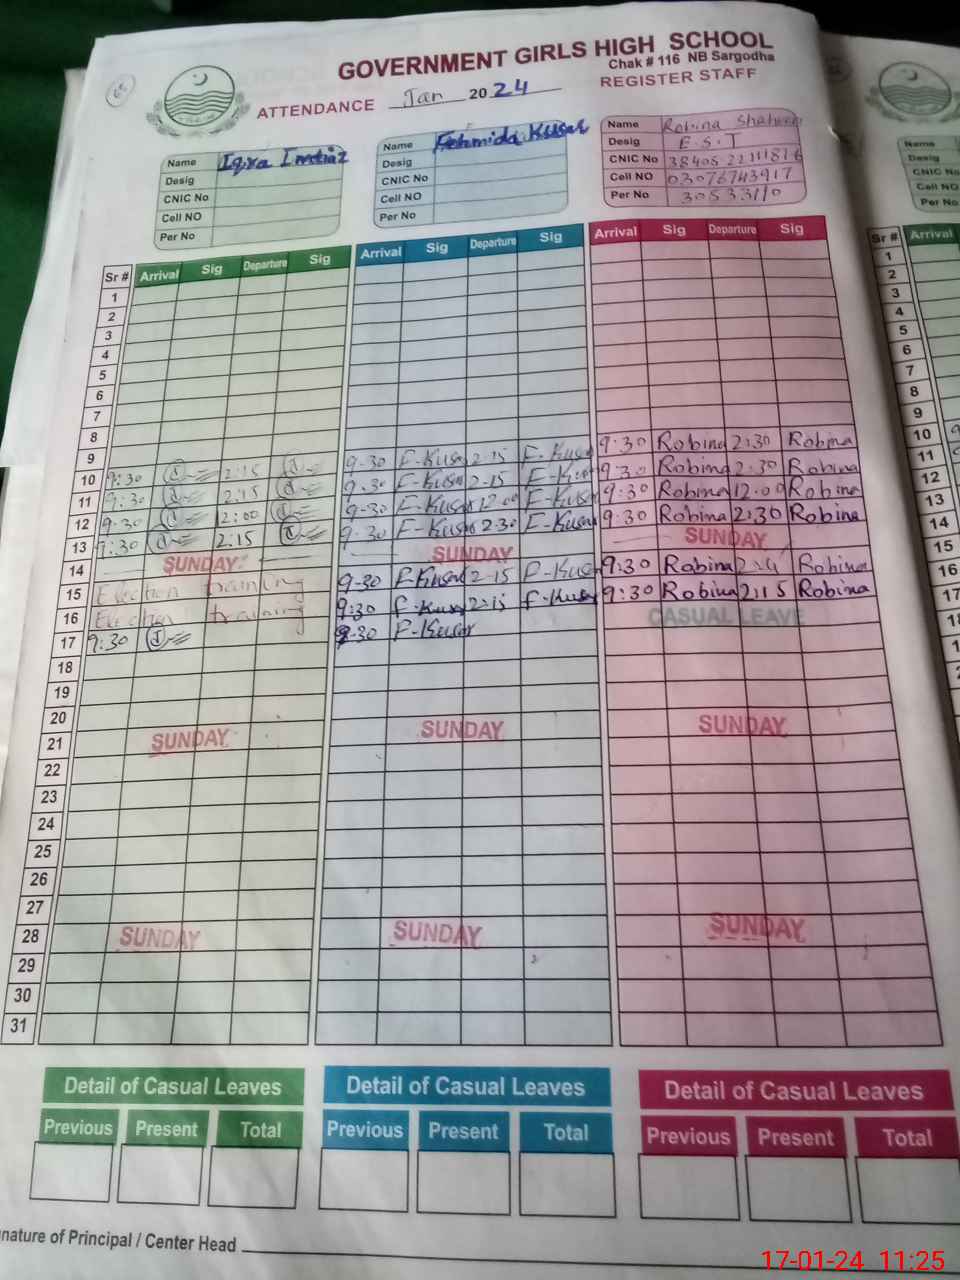 GOVERNMENT GIRLS HIGH SCHOOL
Chak # 116 NB Sargodha
ATTENDANCE Jan 2024 REGISTER STAFF
Name Iqra Imtiaz
Desig
CNIC No
Cell NO
Per No
Name Fehmida Kusar
Desig
CNIC No
Cell NO
Per No
Name Robina Shaheen
Desig E.S.T
CNIC No
Cell NO 03076743917
Per No
Sr # Arrival Sig Departure Sig Arrival Sig Departure Sig Arrival Sig Departure Sig
1
2
3
4
5
6
7
8
9
10 9:30 2:15 9-30 F-Kusar 2-15 F-Kusar 9:30 Robina 2:30 Robina
11 9:30 2:15 9-30 F-Kusar 2-15 F-Kusar 9:30 Robina 2:30 Robina
12 9:30 2:00 9-30 F-Kusar 12-00 F-Kusar 9:30 Robina 12:00 Robina
13 9:30 2:15 9-30 F-Kusar 2-30 F-Kusar 9:30 Robina 2:30 Robina
14 SUNDAY SUNDAY SUNDAY
15 Election training 9-30 F-Kusar 2-15 F-Kusar 9:30 Robina Robina
16 Election training 9:30 F-Kusar 2-15 F-Kusar 9:30 Robina 2:15 Robina
17 9:30 9-30 F-Kusar CASUAL LEAVE
18
19
20
21 SUNDAY SUNDAY SUNDAY
22
23
24
25
26
27
28 SUNDAY SUNDAY SUNDAY
29
30
31
Detail of Casual Leaves Detail of Casual Leaves Detail of Casual Leaves
Previous Present Total Previous Present Total Previous Present Total
nature of Principal / Center Head
17-01-24 11:25
Name
Desig
CNIC No
Cell No
Per No
Sr # Arrival
1
2
3
4
5
6
7
8
9
10
11
12
13
14
15
16
17